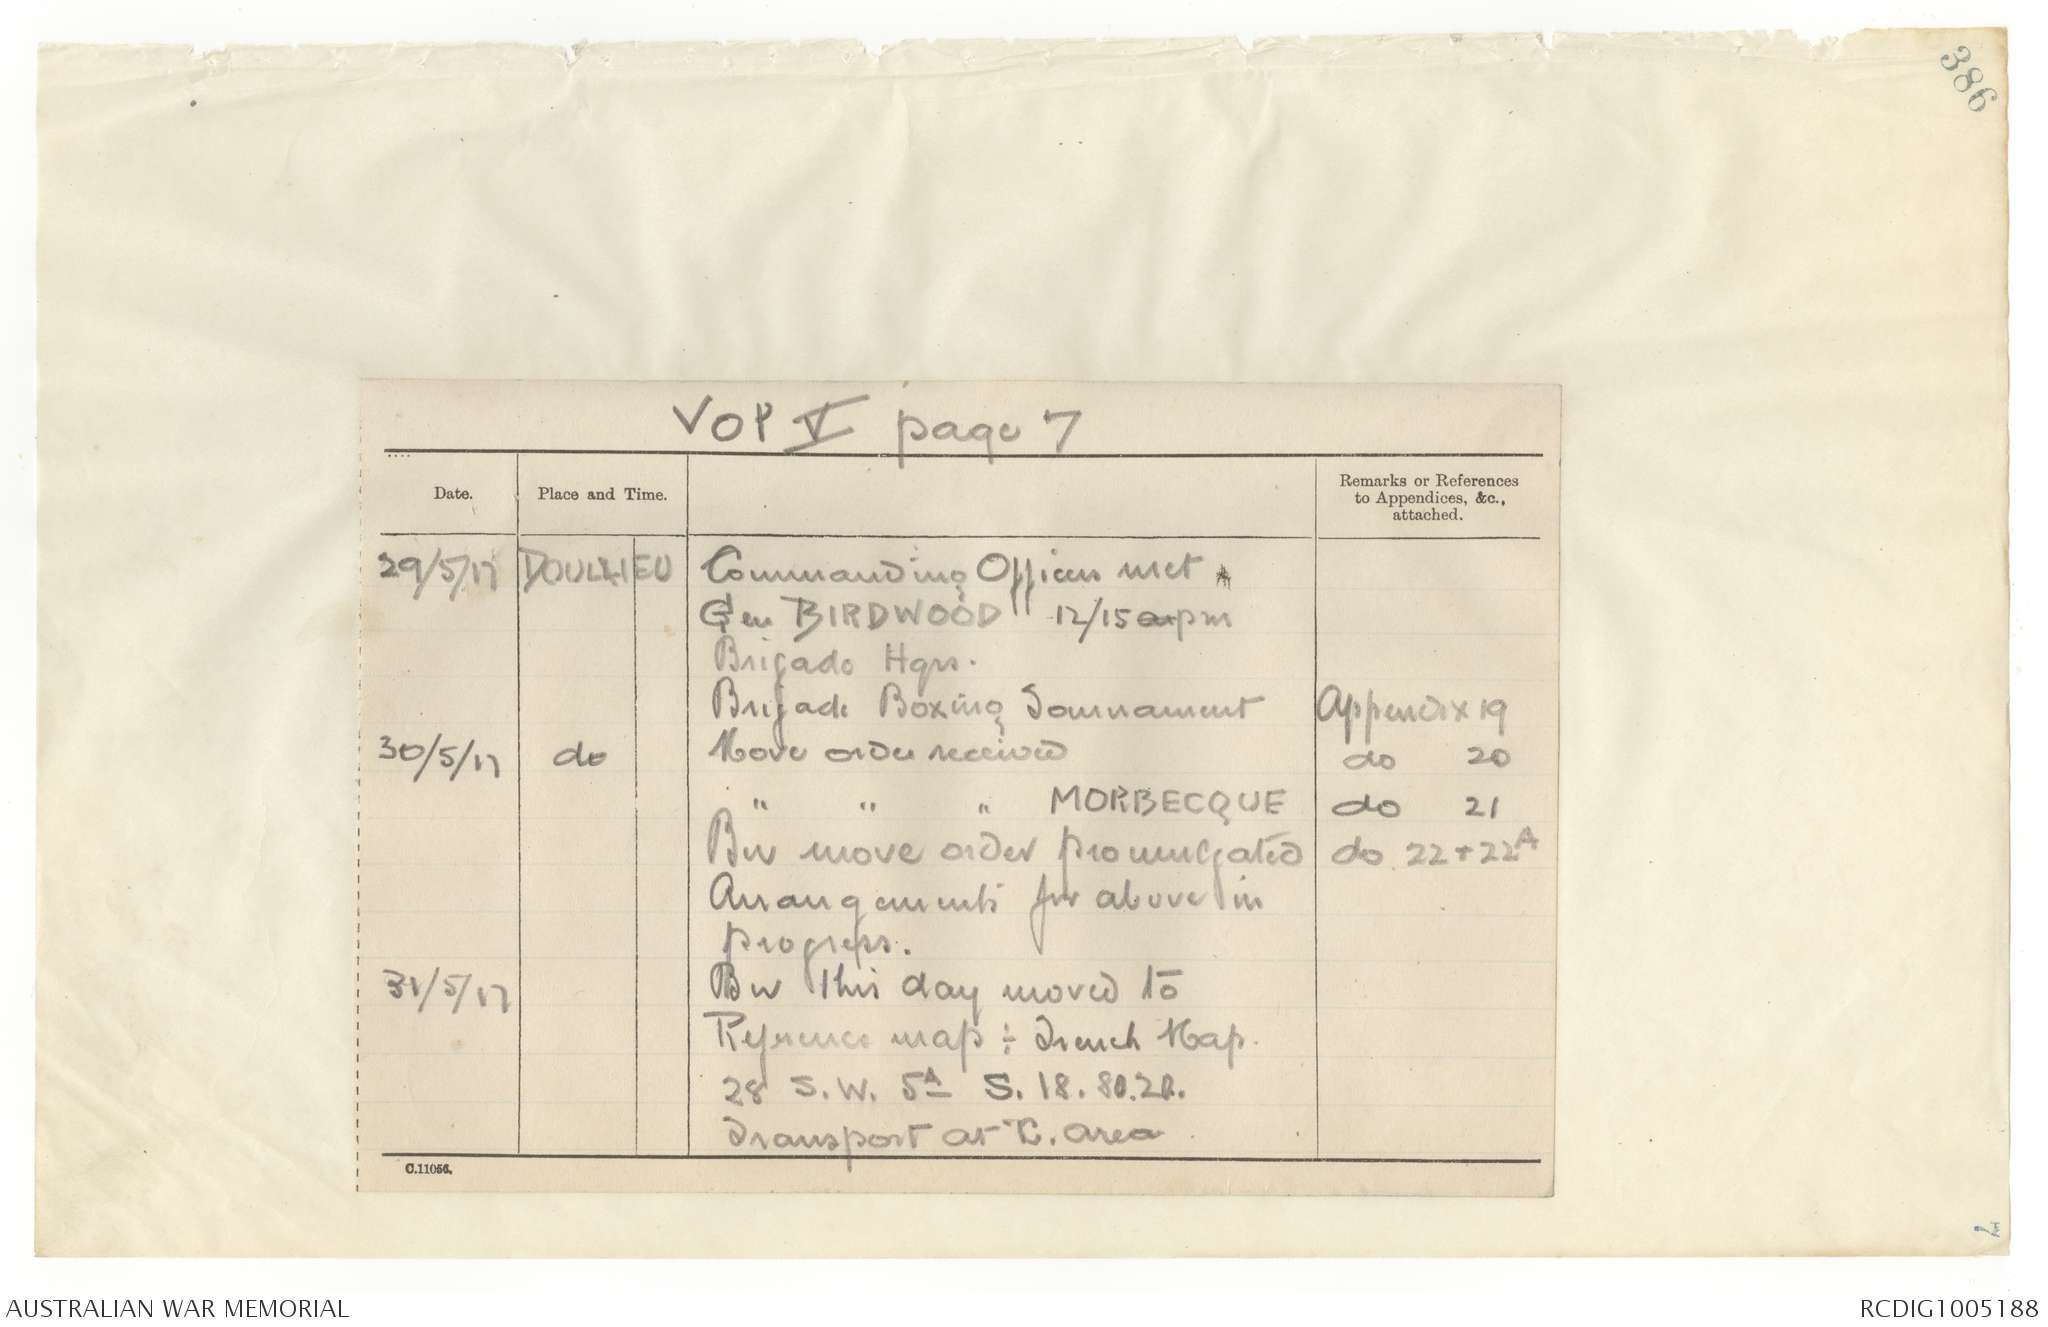 386
Vol V page 7
Date. Place and Time. Remarks or References
to Appendices, &c.,
attached.
29/5/17 DOULLIEU Commanding Officers met
Gen BIRDWOOD 12/15 pm
Brigade Hqrs.
Brigade Boxing Tournament Appendix 19
30/5/17 do Move order received do 20
" " " MORBECQUE do 21
Bn move order promulgated do 22 + 22A
Arrangements for above in
progress.
31/5/17 Bn this day moved to
Reference map ÷ Trench Map.
28 S.W. 5A S. 18. 80.20.
Transport at area
C.11056.
7
AUSTRALIAN WAR MEMORIAL RCDIG1005188